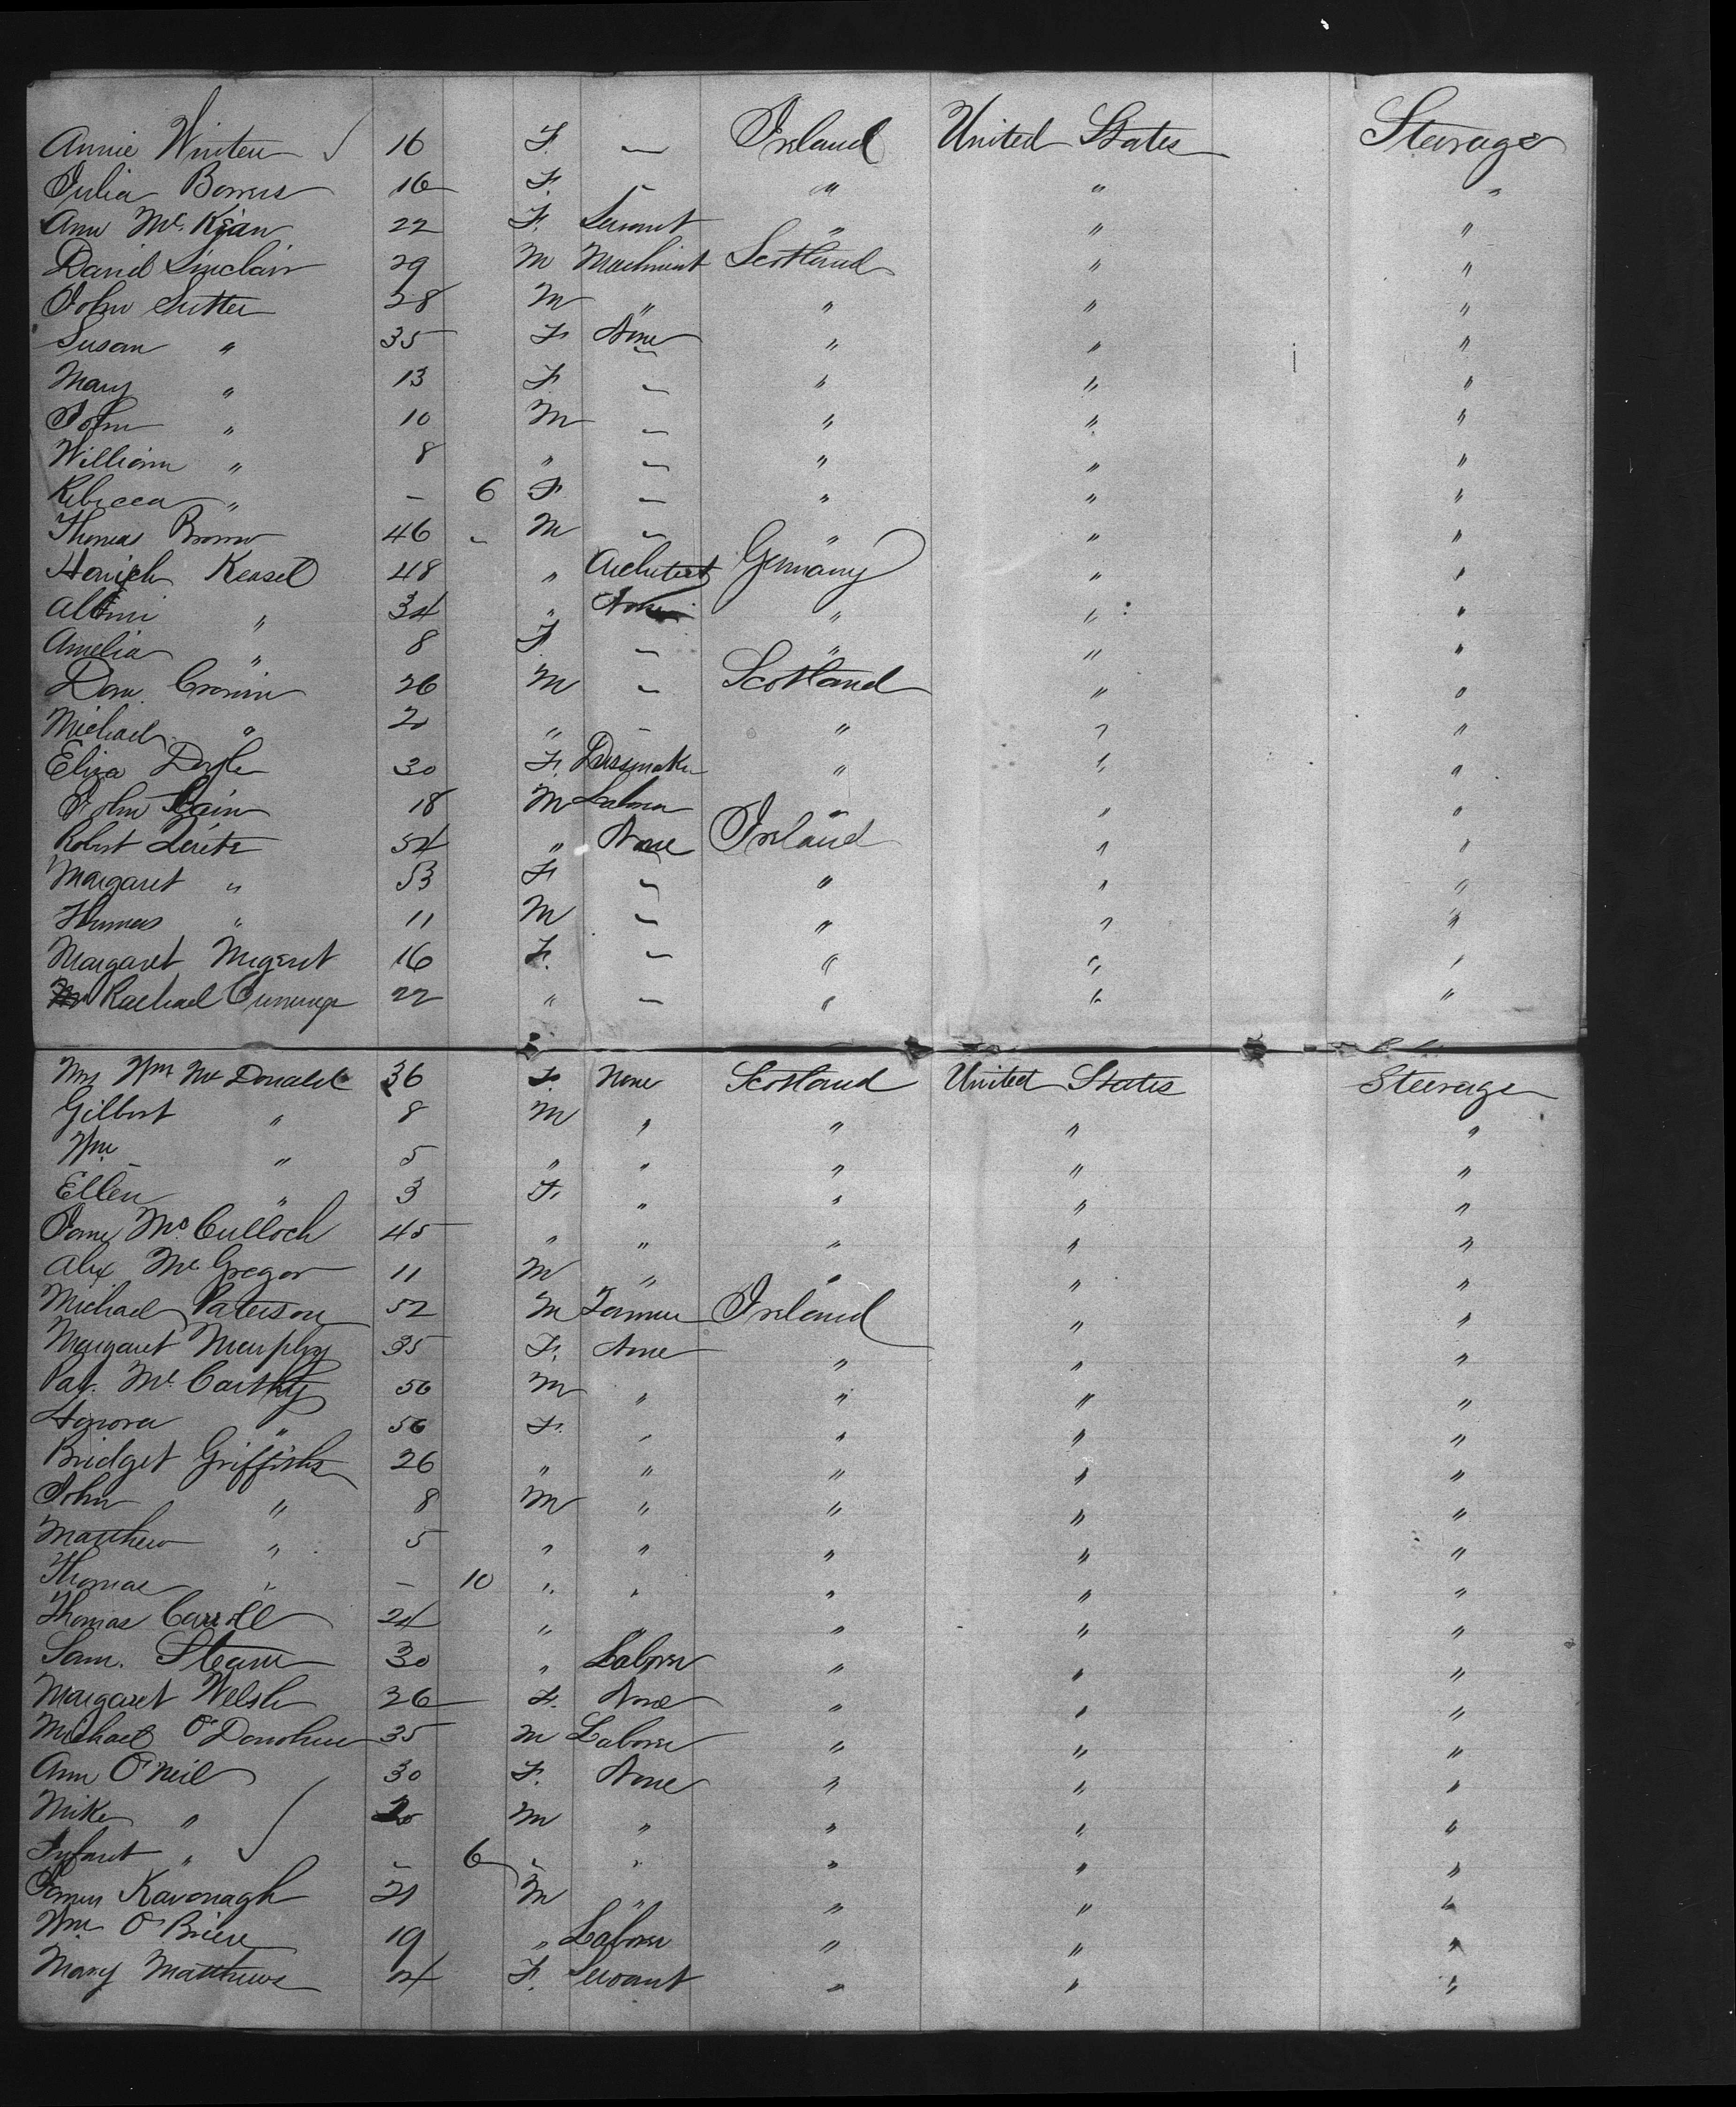 Annie Winter 16 F. — Ireland United States Steerage
Julia Bowers 16 F. - " " "
Ann McKean 22 F. Servant " " "
David Sinclair 29 M Machinist Scotland " "
John Sutter 28 M " " " "
Susan " 35 F. None " " "
Mary " 13 F. — " " "
John " 10 M — " " "
William " 8 " — " " "
Rebecca " - 6 F — " " "
Thomas Brown 46 - M — " " "
Henrich Keasel 48 " Architect Germany " "
" 34 " None " " "
Amelia " 8 F. — " " "
Cronin 26 M — Scotland " "
Michael " 2 " — " " "
Eliza Doyle 30 F. Dressmaker " " "
John Bain 18 M Labor " " "
Robert 54 " None Ireland " "
Margaret " 53 F. — " " "
Thomas " 11 M — " " "
Margaret Nugent 16 F. — " " "
Rachael Cummings 22 " — " " "
Mrs Wm McDonald 36 F. None Scotland United States Steerage
Gilbert " 8 M " " " "
Wm " 5 " " " " "
Ellen " 3 F. " " " "
Jane McCulloch 45 " " " " "
Alex McGregor 11 M " " " "
Michael Paterson 52 M Farmer Ireland " "
Margaret Murphy 35 F. None " " "
Pat. McCarthy 56 M " " " "
Honora " 56 F. " " " "
Bridget Griffiths 26 " " " " "
John " 8 M " " " "
Matthew " 5 " " " " "
Thomas " - 10 " " " " "
Thomas Carroll 24 " " " " "
Sam. Steam 30 " Laborer " " "
Margaret Welsh 26 F. None " " "
Michael O'Donohue 35 M Laborer " " "
Ann O'Neil 30 F. None " " "
Mike " M " " " "
Infant " - 6 - " " " "
James Kavonagh 21 M " " " "
Wm. O'Briene 19 " Laborer " " "
Mary Matthews 24 F. Servant " " "